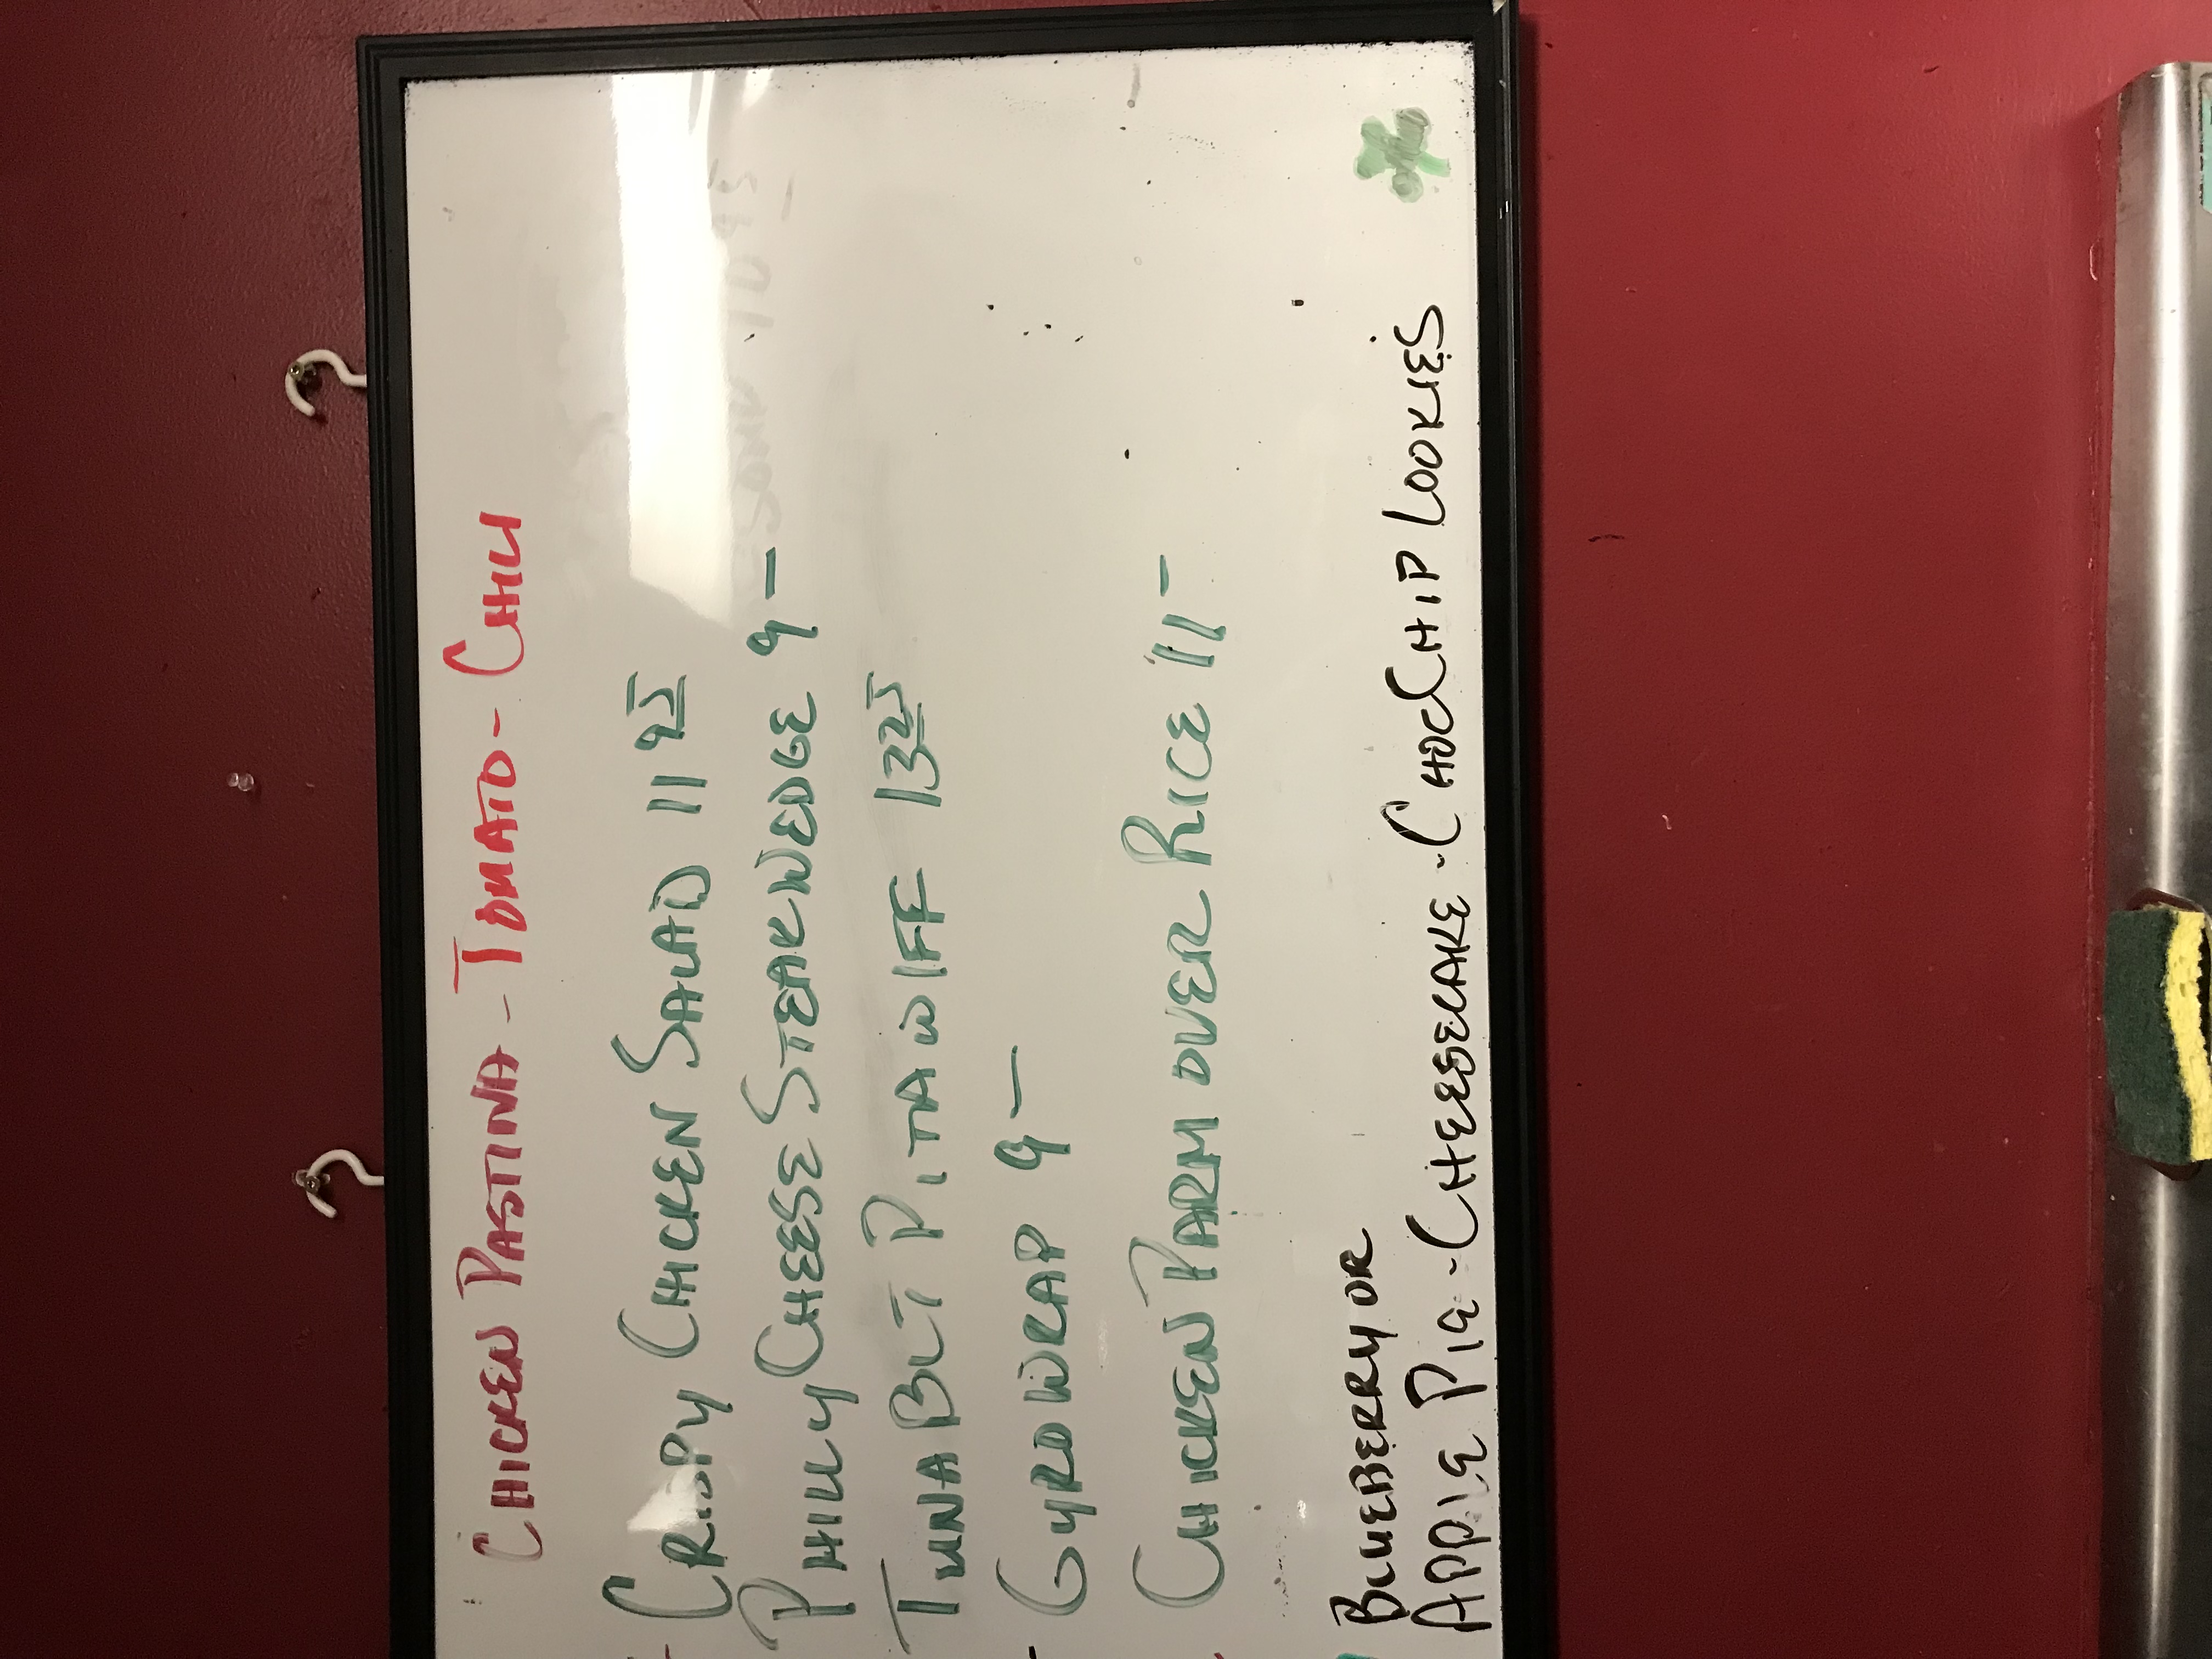 CHICKEN PASTINA - TOMATO - CHILI
CRISPY CHICKEN SALAD 11 95
PHILLY CHEESE STEAK WEDGE 9 -
TUNA BLT PITA W/FF 13 25
GYRO WRAP 9 -
CHICKEN PARM OVER RICE 11 -
BLUEBERRY OR
APPLE PIE - CHEESECAKE - CHOC CHIP COOKIES